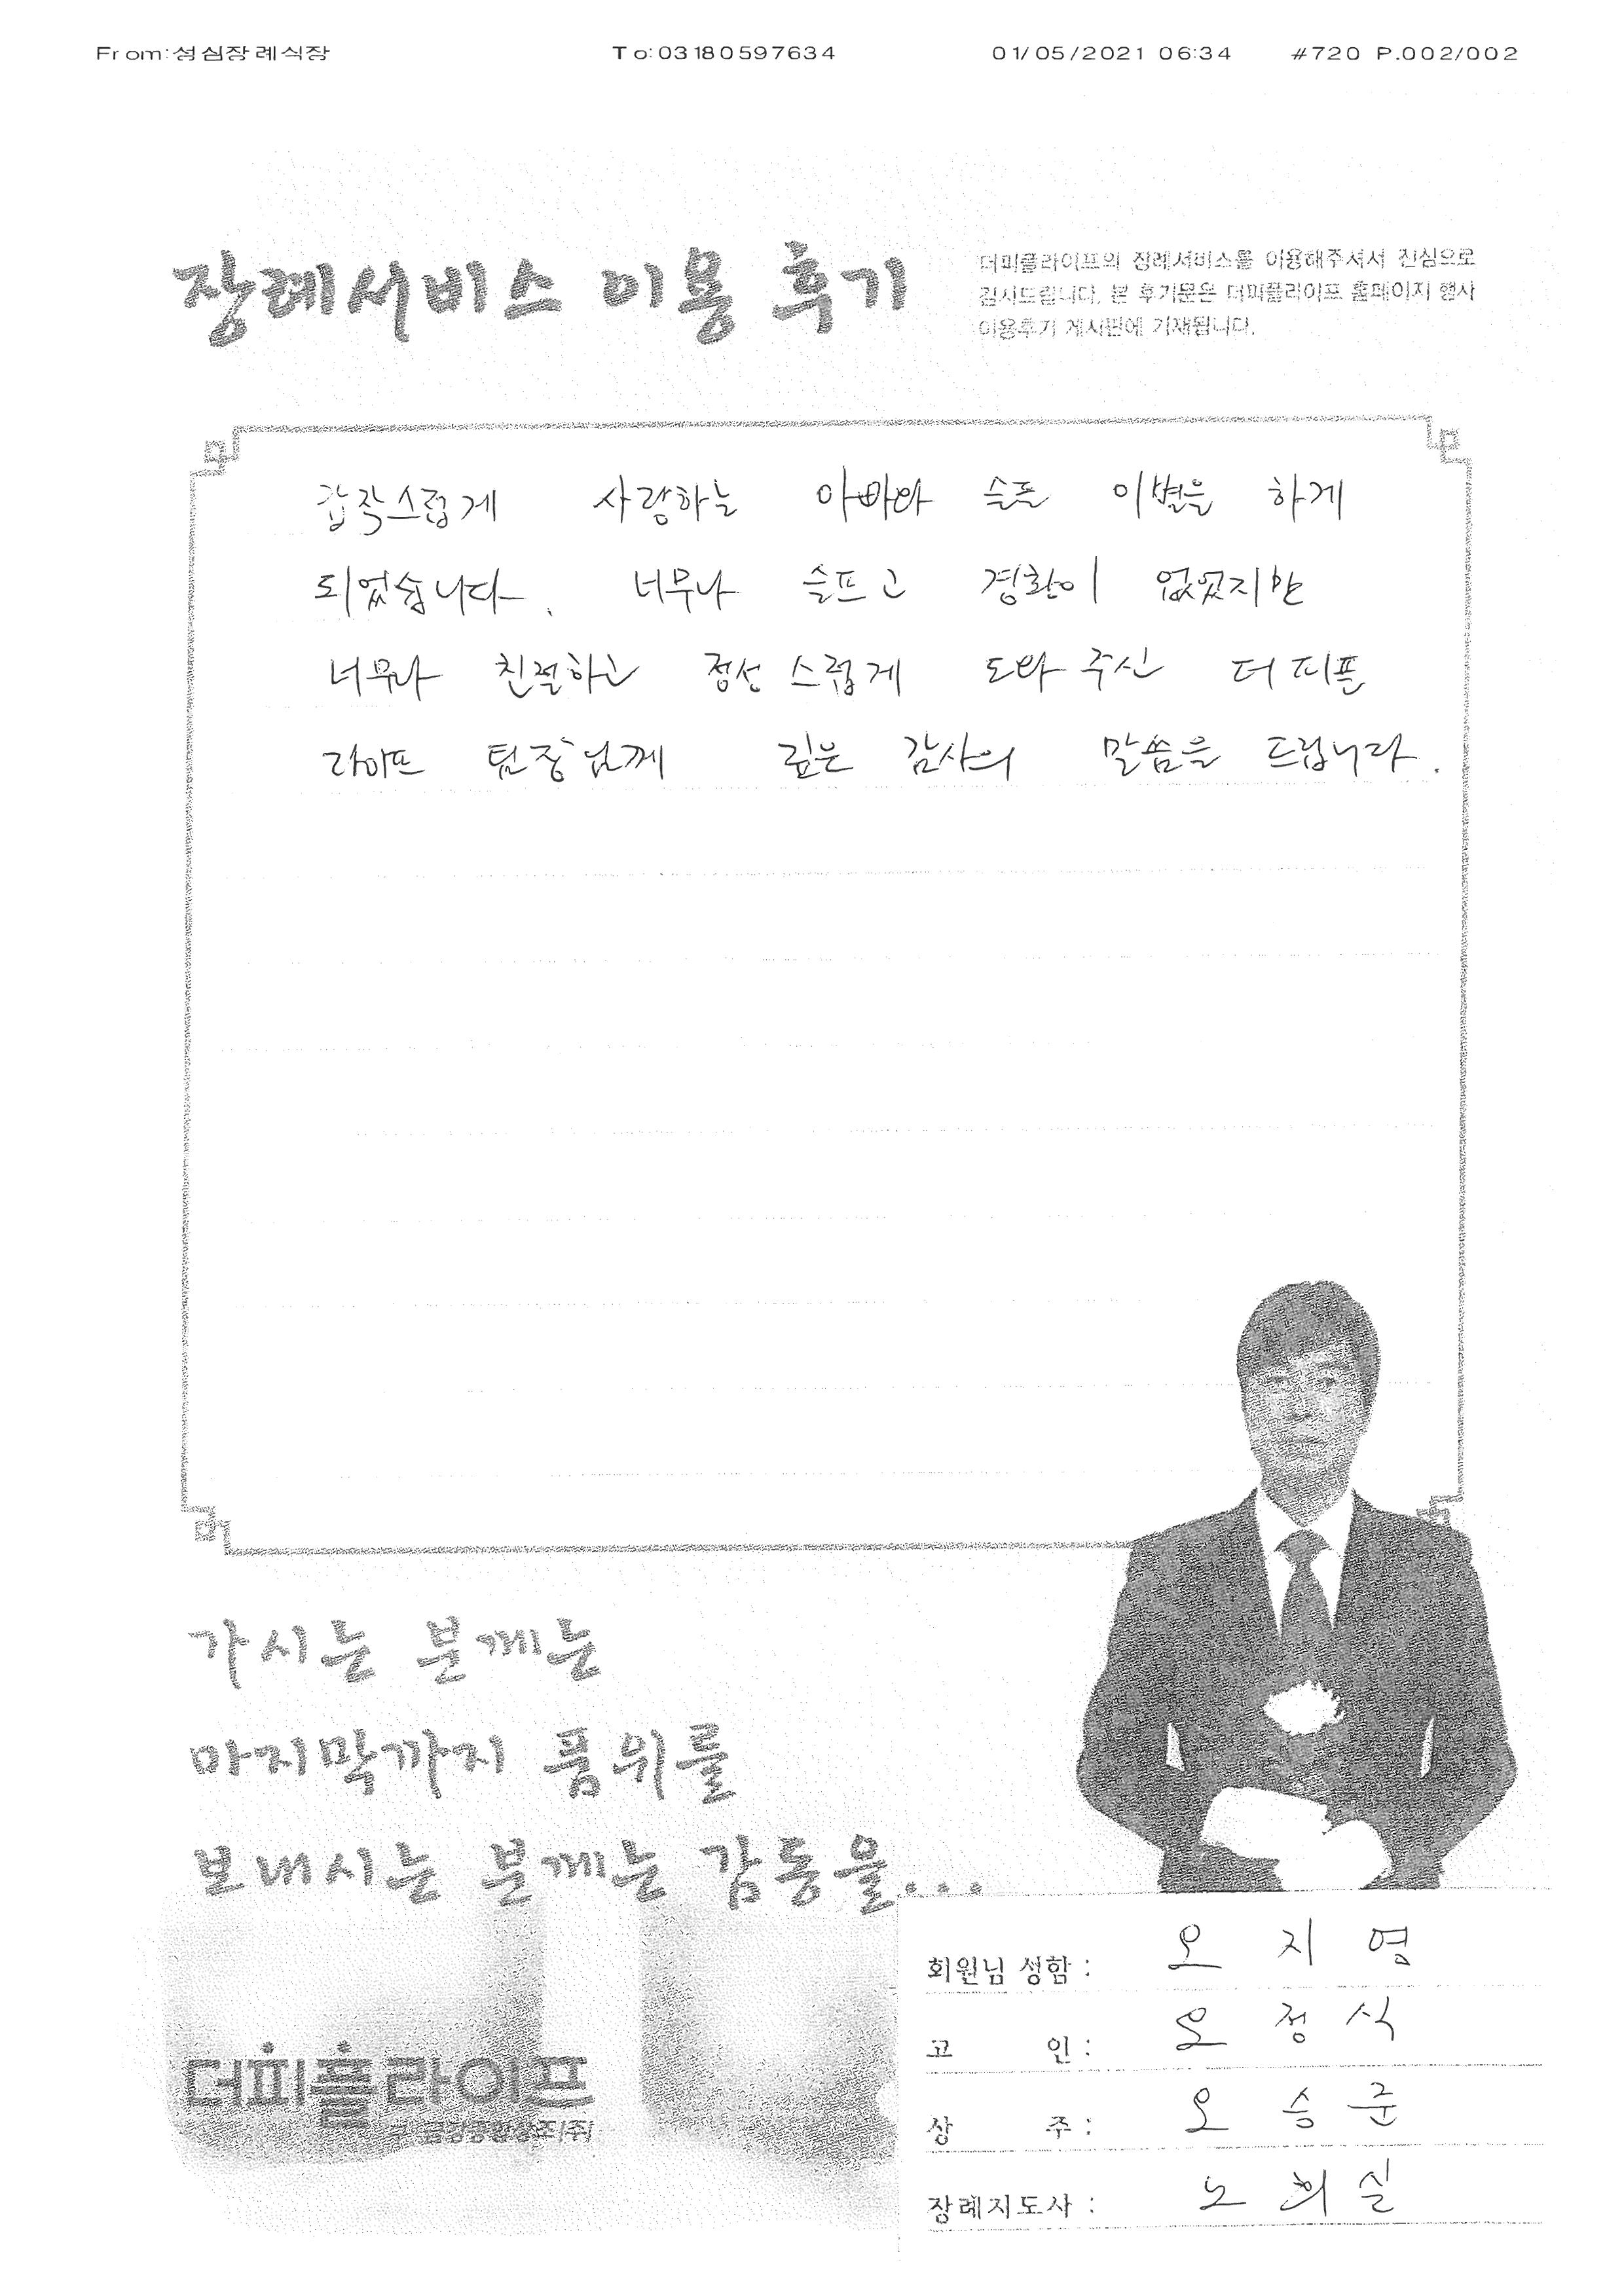 From:성심장례식장 To:03180597634 01/05/2021 06:34 #720 P.002/002
장례서비스 이용 후기
더피플라이프의 장례서비스를 이용해주셔서 진심으로
감사드립니다. 본 후기문은 더피플라이프 홈페이지 행사
이용후기 게시판에 기재됩니다.
갑작스럽게 사랑하는 아빠와 슬픈 이별을 하게
되었습니다. 너무나 슬프고 경황이 없었지만
너무나 친절하고 정성스럽게 도와주신 더피플
라이프 팀장님께 깊은 감사의 말씀을 드립니다.
가시는 분께는
마지막까지 품위를
보내시는 분께는 감동을...
회원님 성함 : 오 지 영
고 인 : 오 정 식
상 주 : 오 승 준
장례지도사 : 노 희 실
더피플라이프
구 금강종합상조(주)